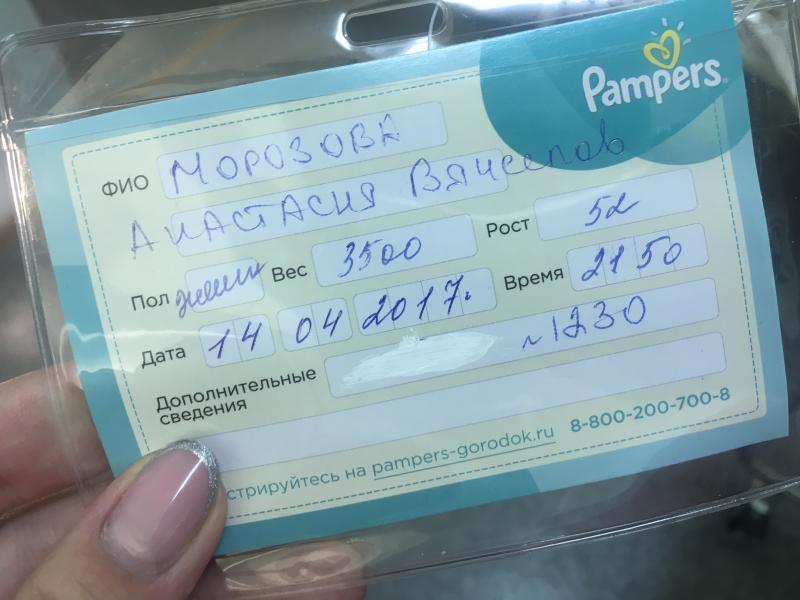 Pampers
ФИО МОРОЗОВА
АНАСТАСИЯ
Пол женск Вес 3500 Рост 52
Дата 14 04 2017. Время 21 50
Дополнительные
сведения
~1230
стрируйтесь на pampers-gorodok.ru 8-800-200-700-8